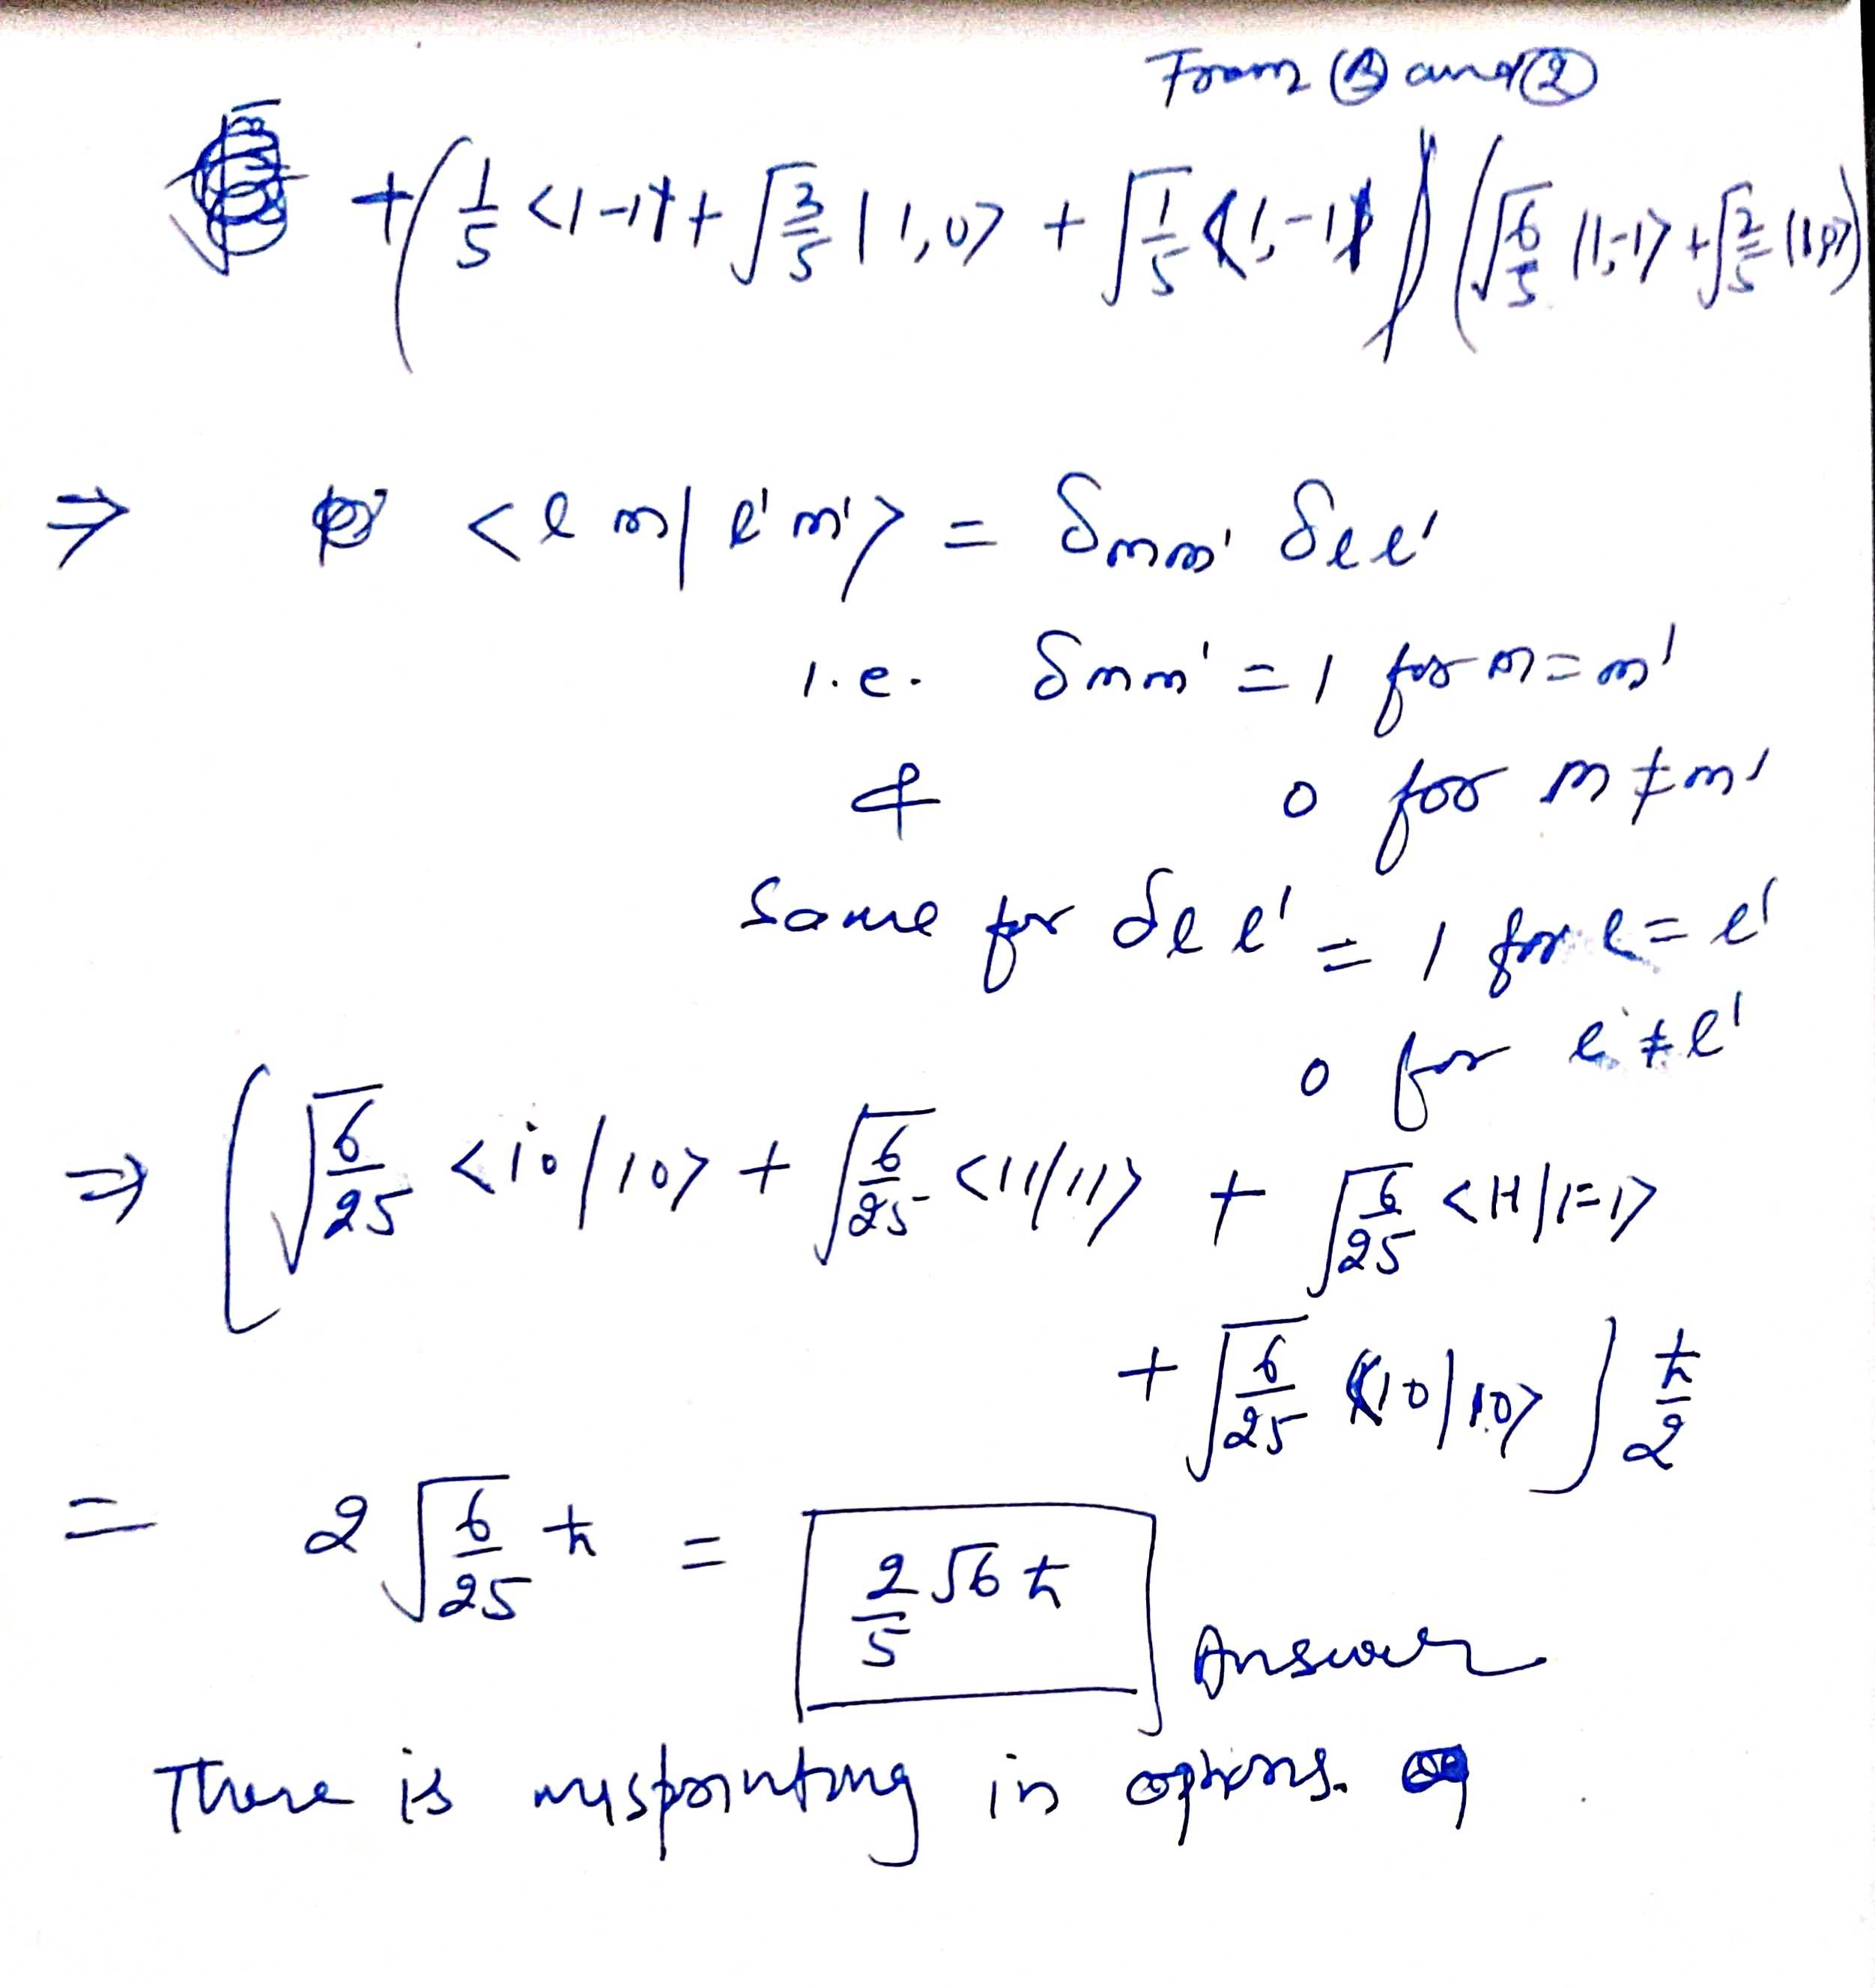 From ③ and ②
+ ( 1/5 <1 -1| + √3/5 |1,0> + √1/5 <1,-1| ) ( √6/5 |1,-1> + √2/5 |1,0> )
⇒ <l m | l' m'> = δmm' δll'
i.e. δmm' = 1 for m = m'
& 0 for m ≠ m'
Same for δll' = 1 for l = l'
0 for l ≠ l'
⇒ ( √6/25 <10|10> + √6/25 <11|11> + √6/25 <11|1-1>
+ √6/25 <10|10> ) ħ/2
= 2 √6/25 ħ = 2/5 √6 ħ
Answer
There is misprinting in options.